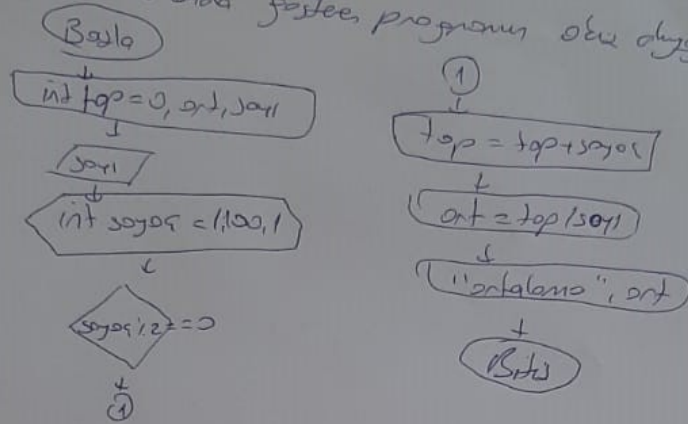 gösteren programın akış
Başla
int top=0, ort, sayı
sayı
int sayac = 1,100,1
sayac%2==0
1
1
top = top+sayac
ort = top/sayı
"ortalama", ort
Bitiş